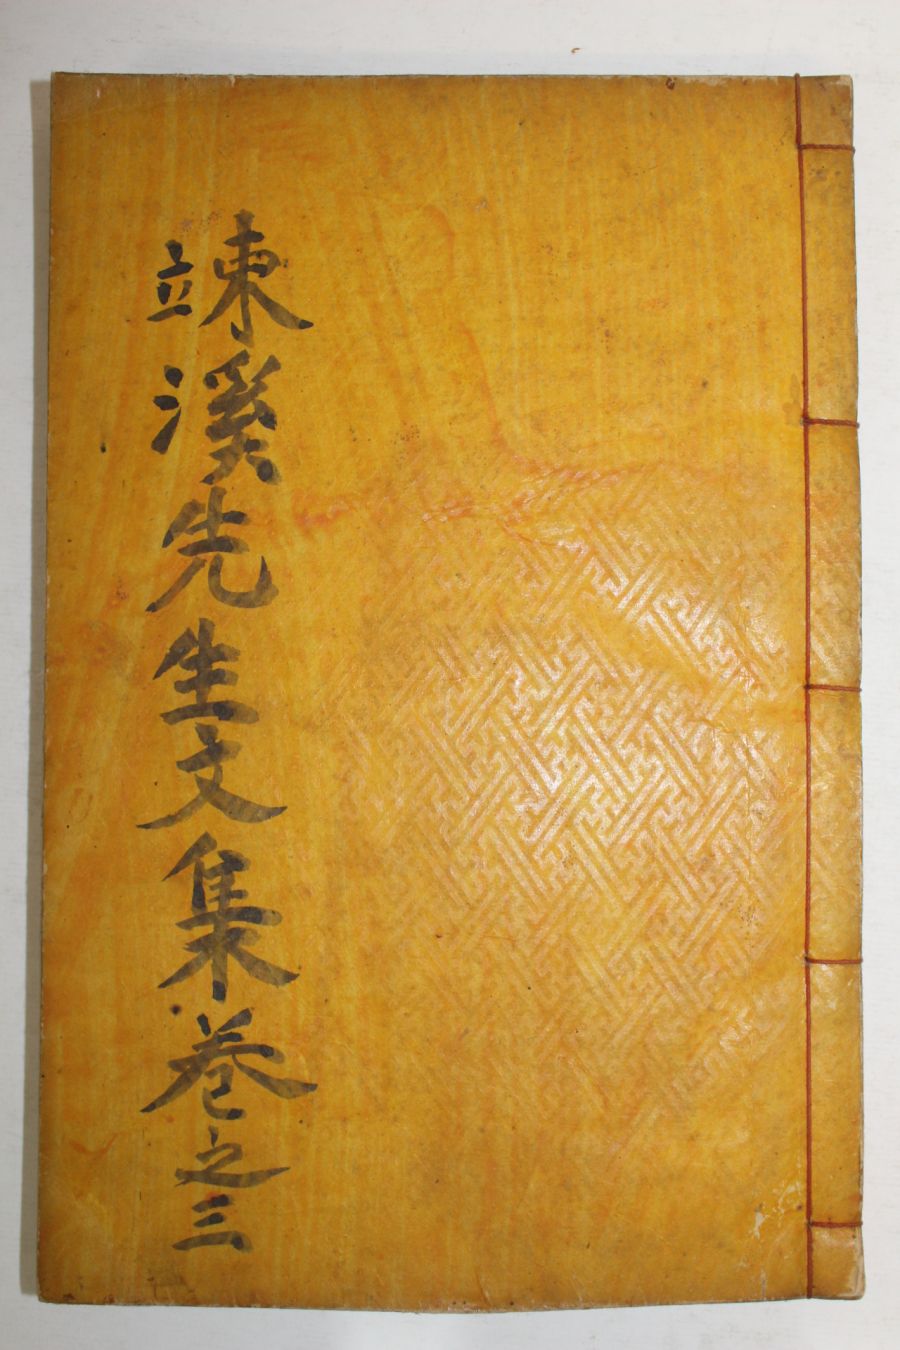 竦溪先生文集卷之三